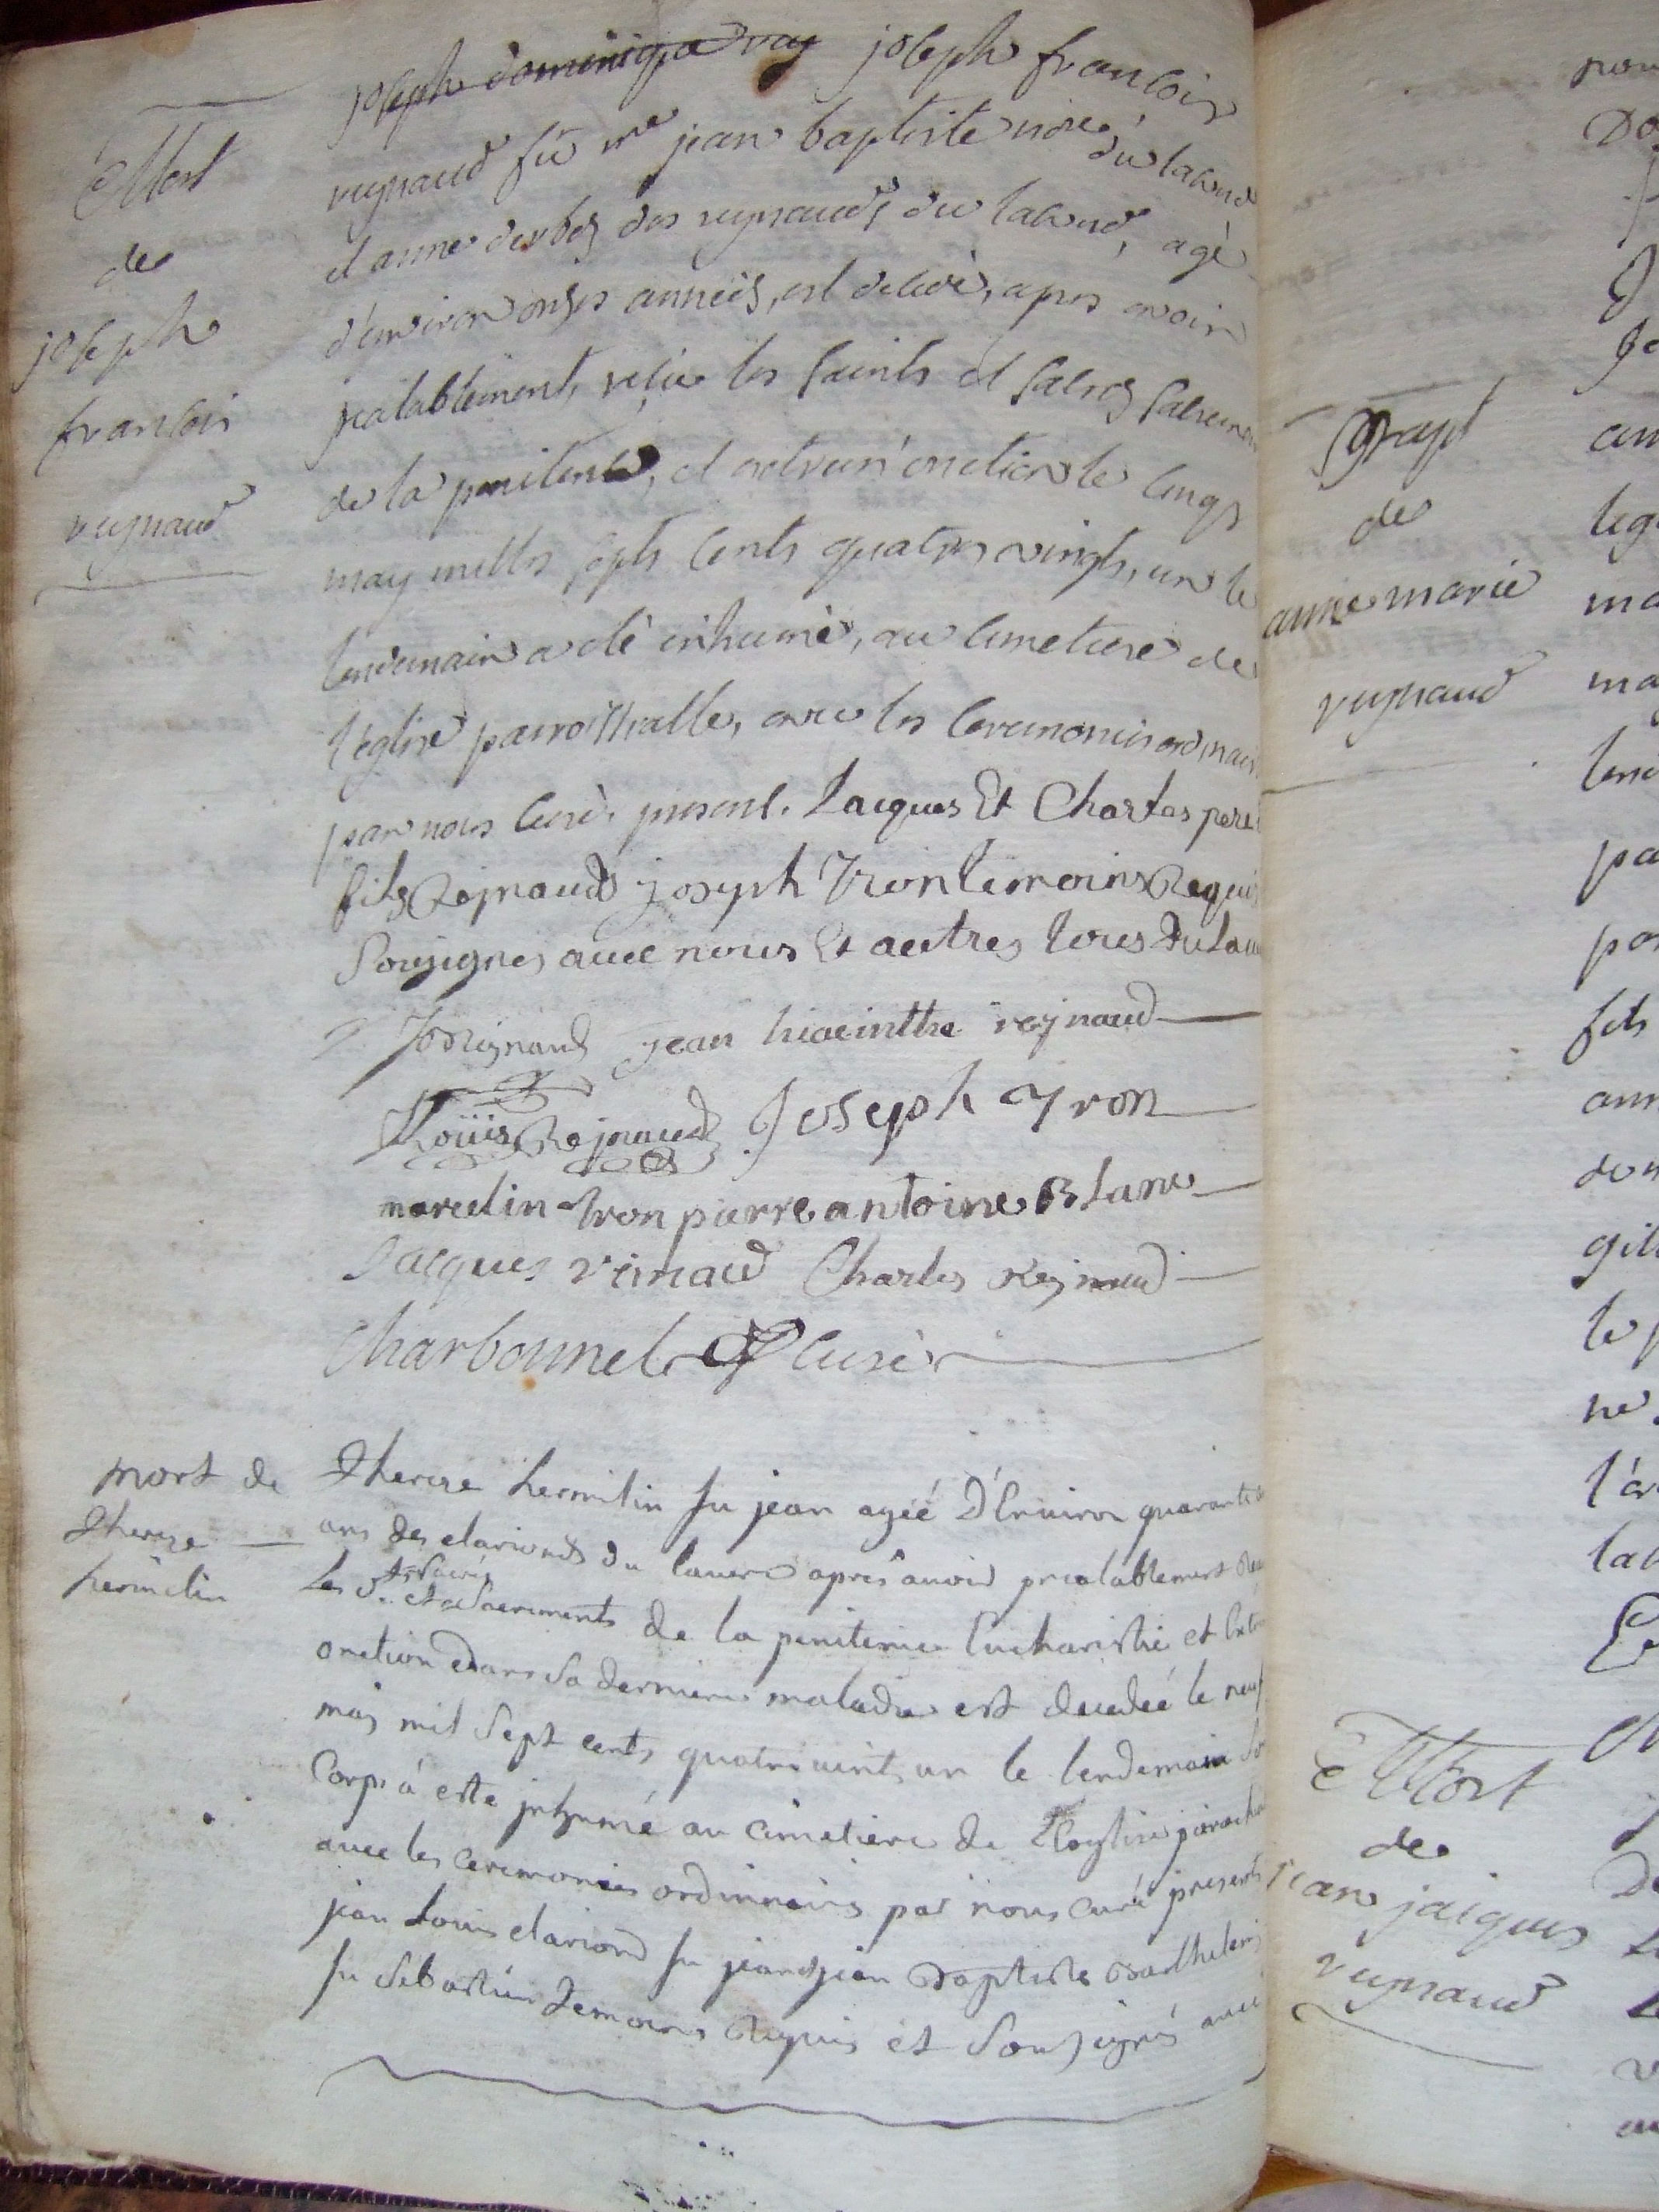 joseph dominique rey joseph francois
reynaud fù me jean baptiste nore du laverd
et anne derbes des reynauds du laverd, agé
d'environ onzes années, est décédé, apres avoir
prealablement reçüe les saints et sacres sacremen
de la penitence, et extreme onction le cinq
may milles septs cents quatres vingts, un le
lendemain a été inhumé, au cimetiere de
l'eglise parroissialle, avec les ceremonies ordinair
par nous curé. present. Jacques Et Charles pere
fils Reynauds joseph Tron temoins Requi
Sousignes avec nous Et autres leves du Lau
J Reignaud jean hiacinthe reynaud
Louïis Rejnaud Joseph Tron
marcelin tron pierre antoine Blanc
Jacques reinaud Charles Rejnaud
Charbonnel curé
Mort
de
joseph
francois
reynaud
mort de
therese
hermelin
therese hermelin fu jean ageé D'Environ quarante
ans des clarionds du laverd aprés avoir prealablement Reçu
Les Sts et Sacrés Sacrements de la penitence Eucharistie et Extr
onction dans Sa derniere maladie est decedeé le neuf
mai mil Sept cents quatre vint un le lendemain So
Corps à esté inhumé au cimetiere de L'eglise paroich
avec les ceremonies ordinaires par nous curé presents
jean Louis clariond fu jean jean Baptiste Barthelemi
fu Sebastien temoins Requis et Sousignés avec
Bapt
de
anne marie
reynaud
Mort
de
jean jacques
reynaud